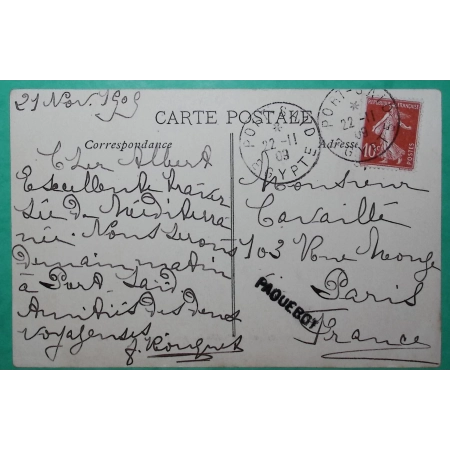 21 Nov. 1909
CARTE POSTALE
Correspondance
Adresse
Cher Albert
Excellente traver
sée de Méditerra
née. Nous serons
Demain matin
à Port-Saïd.
Amitiés des deux
voyageuses
J. Bouquet
Monsieur
Cavaillé
103 Rue Monge
Paris
France
PAQUEBOT
PORT-SAID
22-11
09
EGYPTE
PORT-SAID
22-11
09
REPUBLIQUE FRANÇAISE
10c
POSTES